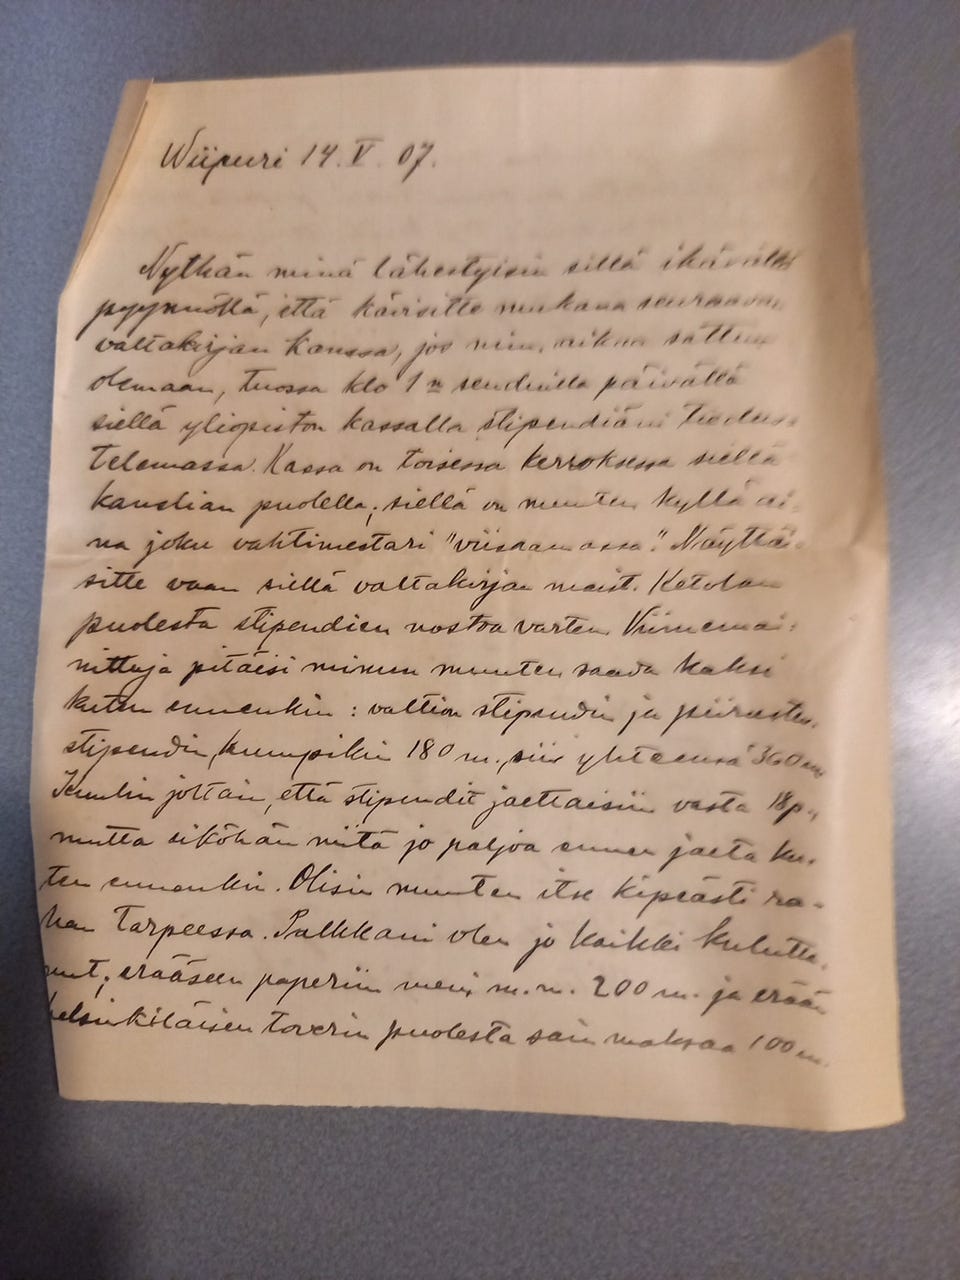 Wiipuri 14. V. 07.
Nythän minä lähestyisin sillä ikävällä
pyynnöllä, että kävisitte mukana seuraavan
valtakirjan kanssa, jos niin sattuu
olemaan, tuossa klo 1 n seuduilla päivällä
siellä yliopiston kassalla stipendiäni tiedus-
telemassa. Kassa on toisessa kerroksessa siellä
kanslian puolella; siellä on muuten kyllä ai-
na joku vahtimestari "viisaamassa". Näyttäi-
sitte vaan siellä valtakirjan maist. Ketolan
puolesta stipendien nostoa varten. Viimemai-
nittuja pitäisi minun muuten saada kaksi
kuten ennenkin: valtion stipendin ja piirustus-
stipendin, kumpikin 180 m., siis yhteensä 360 m.
Kuulin jottain, että stipendit jaettaisiin vasta 18 p.,
mutta eiköhän niitä jo paljoa ennen jaeta ku-
ten ennenkin. Olisin muuten itse kipeästi ra-
han tarpeessa. Palkkani olen jo kaikki kulutta-
nut; erääseen paperiin meni m.m. 200 m. ja erään
helsinkiläisen toverin puolesta sain maksaa 100 m.